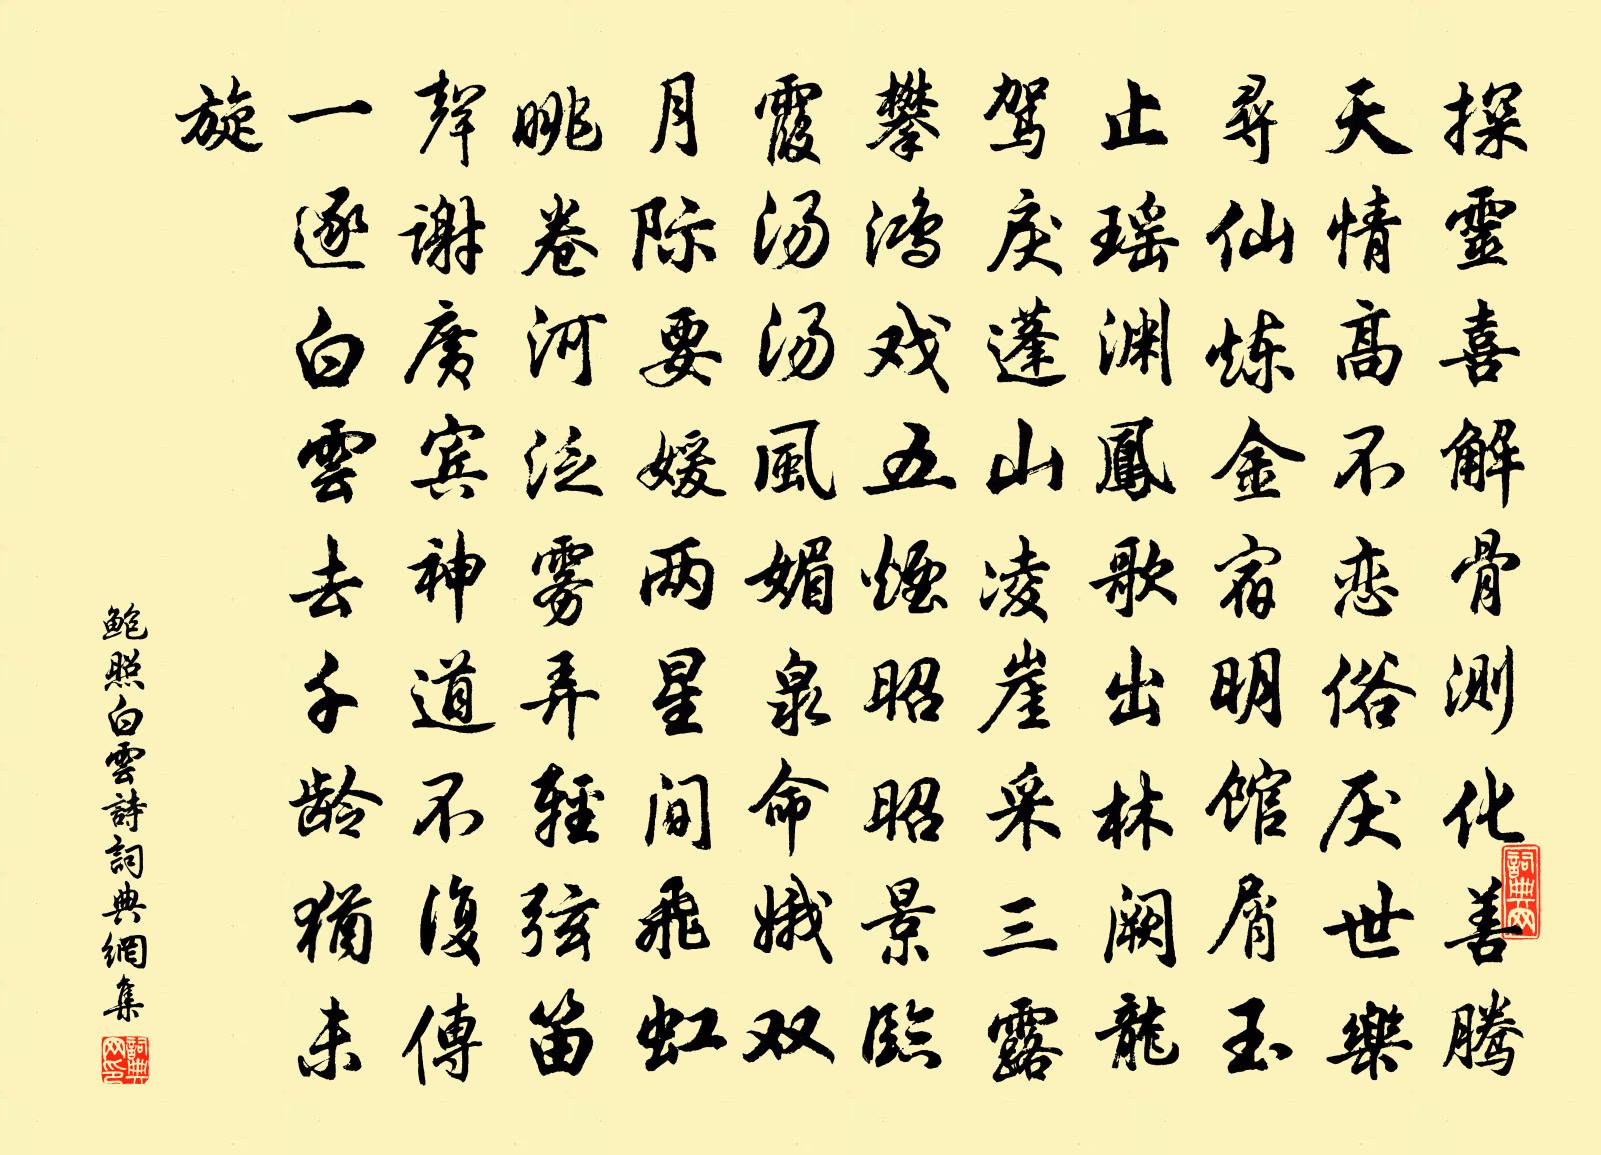 探靈喜解骨测化善腾
天情高不恋俗厌世樂
尋仙炼金宿明馆屑玉
止瑶渊鳳歌出林阙龍
驾戾蓬山凌崖采三露
攀鸿戏五煙昭昭景臨
霞汤汤風媚泉命娥双
月际要媛两星间飛虹
眺卷河泛雾弄輕弦笛
聲謝廣宾神道不復傳
一逐白雲去千龄猶未
旋
鮑照白雲詩詞典網集
詞典网
詞典网印